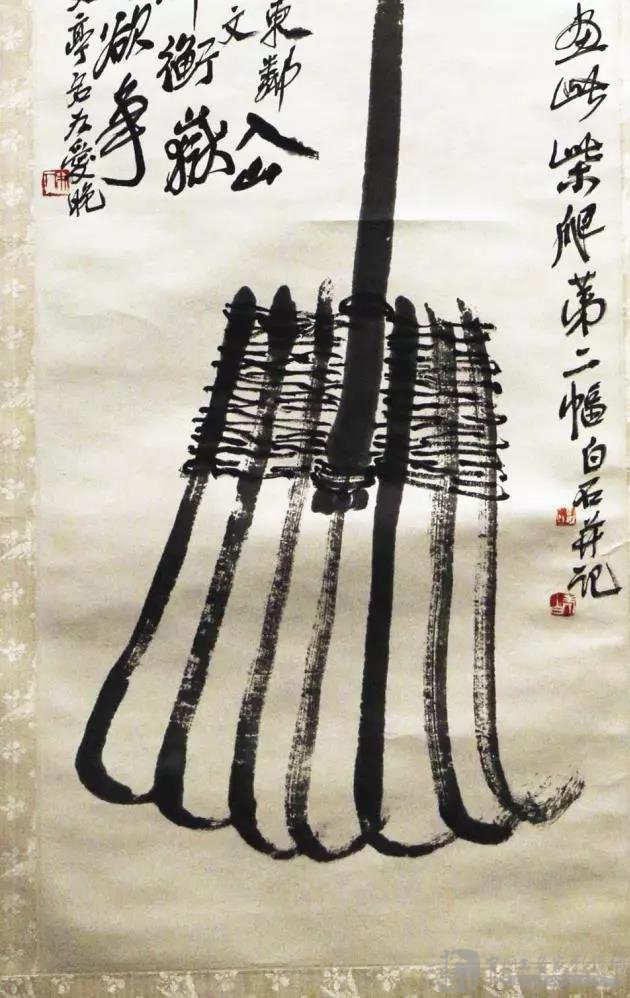 画此柴爬第二幅白石并記
東鄰
文
入山
衡嶽
欲爭
亭名為愛晚